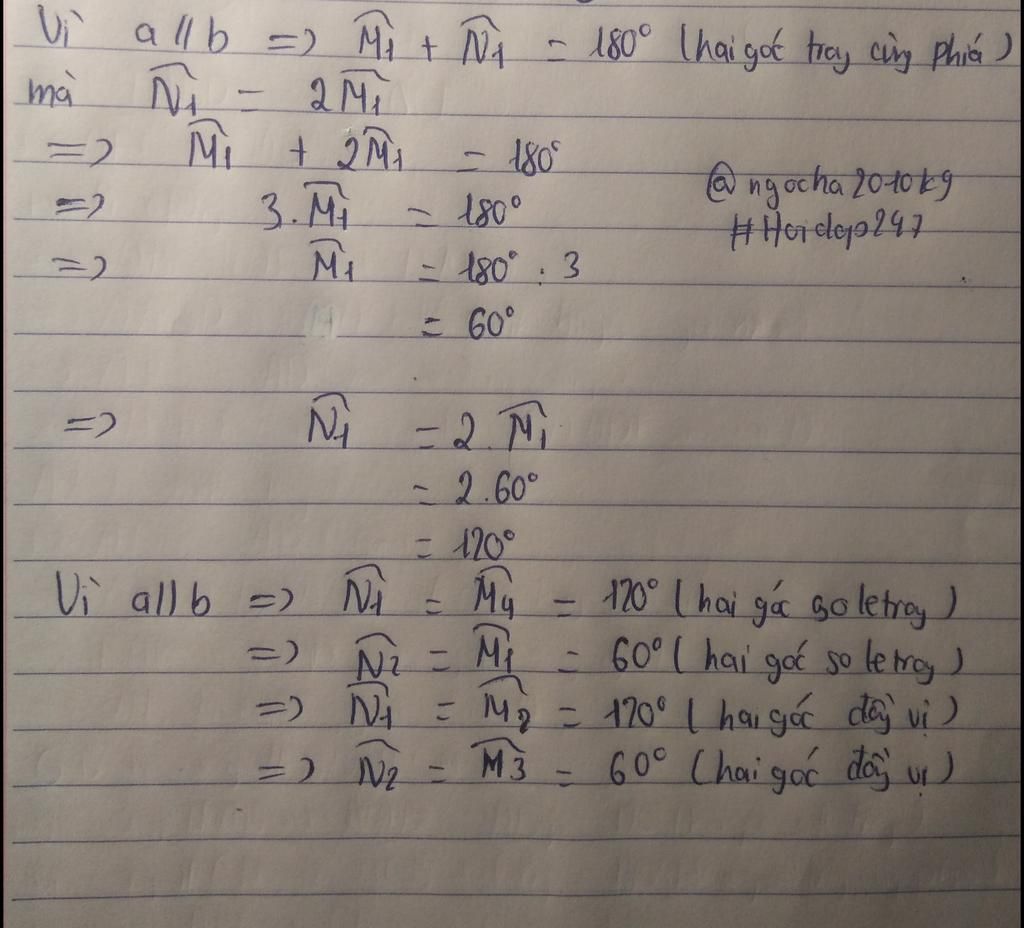 Vì a // b => M̂1 + N̂1 = 180° (hai góc trong cùng phía)
mà N̂1 = 2M̂1
=> M̂1 + 2M̂1 = 180°
=> 3.M̂1 = 180°
@ngocha2010kg
#Hoidap247
=> M̂1 = 180° : 3
= 60°
=> N̂1 = 2.M̂1
= 2.60°
= 120°
Vì a // b => N̂1 = M̂4 = 120° (hai góc so le trong)
=> N̂2 = M̂1 = 60° (hai góc so le trong)
=> N̂1 = M̂2 = 120° (hai góc đồng vị)
=> N̂2 = M̂3 = 60° (hai góc đồng vị)